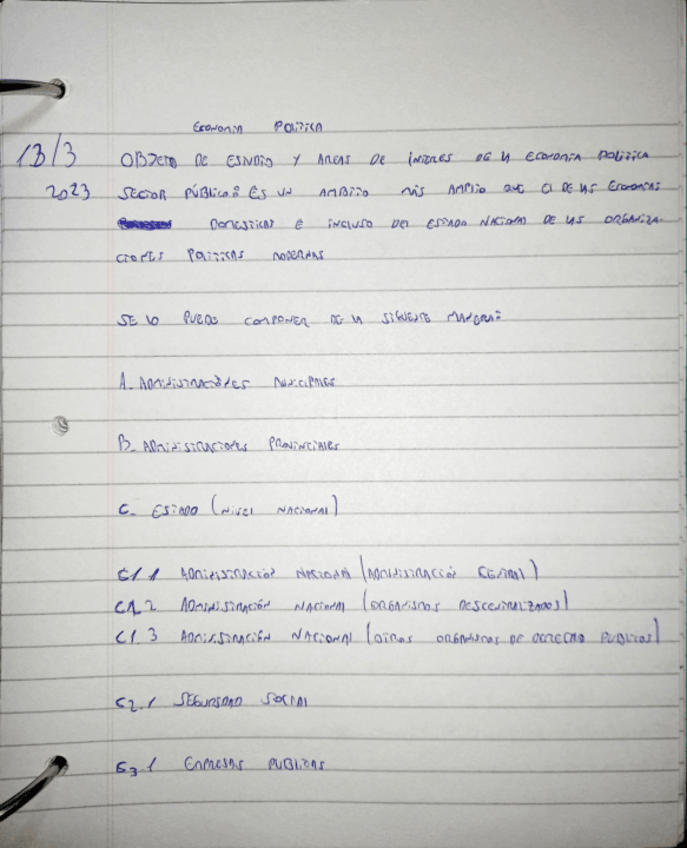 Economia Politica
13/3 OBJETO DE ESTUDIO Y AREAS DE INTERES DE LA ECONOMIA POLITICA
2023 SECTOR PÚBLICO: ES UN AMBITO MÁS AMPLIO QUE EL DE LAS ECONOMIAS
DOMESTICAS E INCLUSO DEL ESTADO NACIONAL DE LAS ORGANIZA-
CIONES POLITICAS MODERNAS
SE LO PUEDE COMPONER DE LA SIGUIENTE MANERA:
A. ADMINISTRACIONES MUNICIPALES
B. ADMINISTRACIONES PROVINCIALES
C. ESTADO (NIVEL NACIONAL)
C1.1 ADMINISTRACIÓN NACIONAL (ADMINISTRACIÓN CENTRAL)
C1.2 ADMINISTRACIÓN NACIONAL (ORGANISMOS DESCENTRALIZADOS)
C1.3 ADMINISTRACIÓN NACIONAL (OTROS ORGANISMOS DE DERECHO PUBLICOS)
C2.1 SEGURIDAD SOCIAL
C3.1 EMPRESAS PUBLICAS